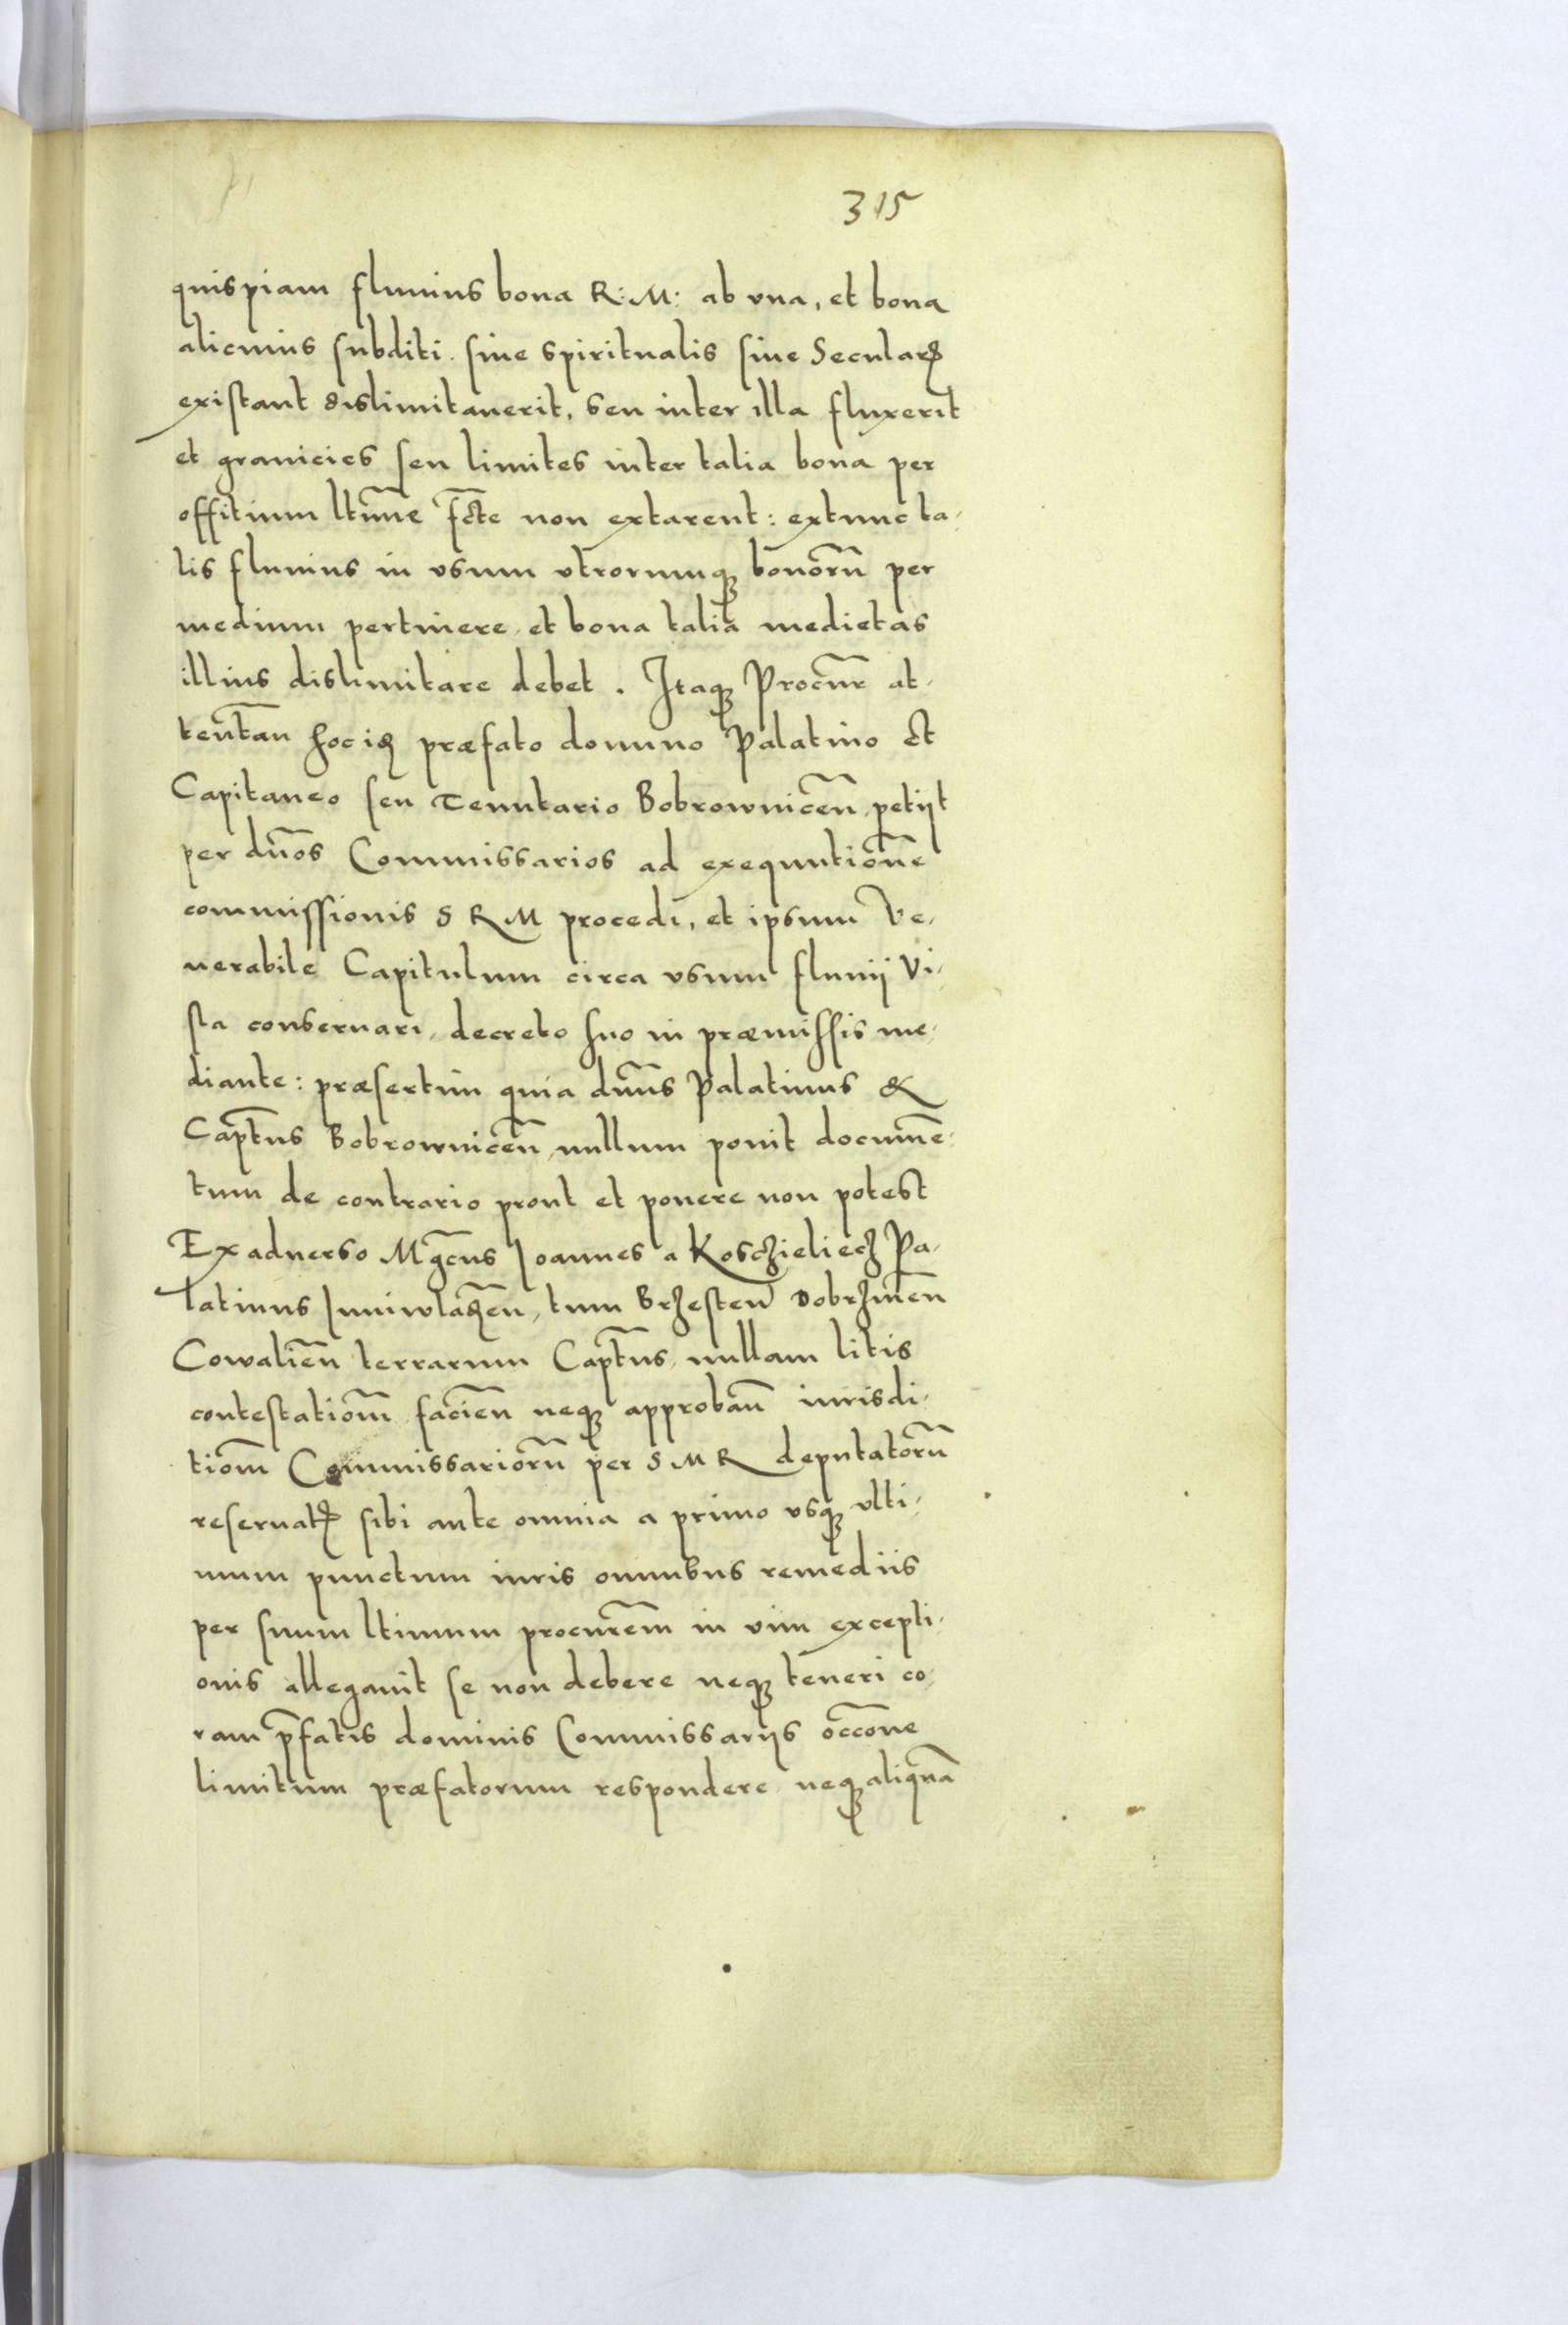 315
quispiam fluuius bona R: M: ab vna, et bona
alicuius subditi siue spiritualis siue Secularꝭ
existant dislimitauerit, seu inter illa fluxerit
et granicies seu limites inter talia bona per
offitium ltīme fcte non extarent: extunc ta-
lis fluuius in vsum vtrorumqꝫ bonorū per
medium pertinere, et bona talia medietas
illius dislimitare debet. Itaqꝫ Procūr at-
tentan̄ præfato domino Palatino et
Capitaneo seu Tenutario Bobrownicen̄, petijt
per dnōs Commissarios ad exequutionē
commissionis S R M procedi, et ipsum Ve-
nerabile Capitulum circa vsum fluuij Vi-
sla conseruari, decreto suo in præmissis me-
diante: præsertim quia dn̄us Palatinus &
Captn̄us Bobrownicen̄, nullum ponit documē-
tum de contrario prout et ponere non potest
Ex aduerso Mgcūs Joannes a Koschieliecz Pa-
latinus Juniwladen̄, tum Brzesten̄ Dobrzinen̄
Cowalien̄ terrarum Captūs, nullam litis
contestatiom̄ facien̄ neqꝫ approban̄ iurisdi-
tiom̄ Commissariorū per S M R deputatorū
reseruatꝭ sibi ante omnia a primo vsqꝫ vlti-
mum punctum iuris omnibus remediis
per suum ltimum procurēm in vim excepti-
onis allegauit se non debere neqꝫ teneri co-
ram p̄fatis dominis Commissarijs occōne
limitum præfatorum respondere neqꝫ aliquā